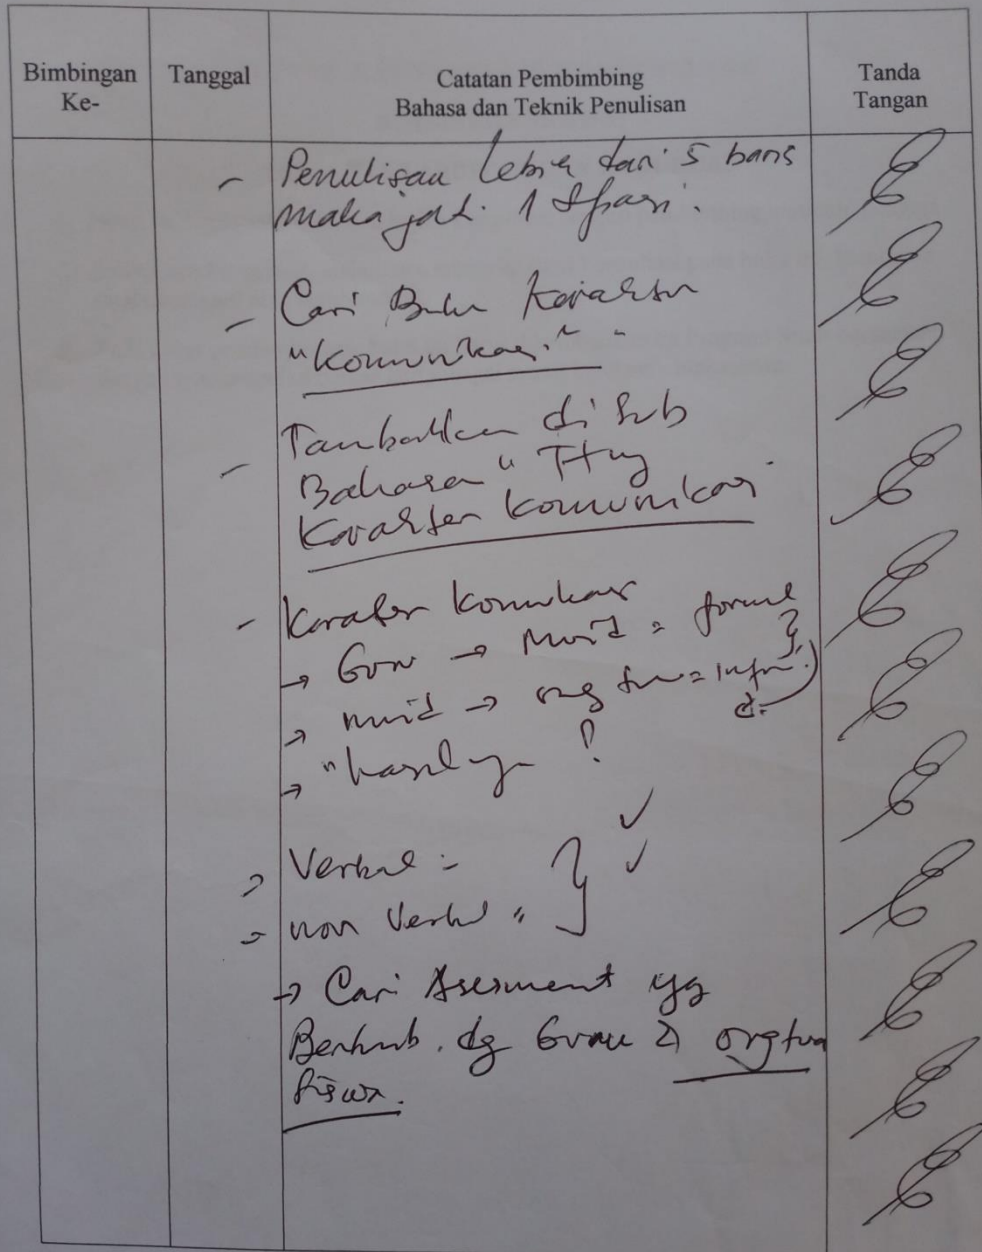 Bimbingan Ke-
Tanggal
Catatan Pembimbing
Bahasa dan Teknik Penulisan
Tanda Tangan
- Penulisan lebih dari 5 baris
maka jd. 1 Spasi.
- Cari Buku Karakter
"Komunikasi"
- Tambahkan di Sub
Bahasan " Ttng
Karakter Komunikasi
- Karakter Komunikasi
→ Guru → Murid = formal
→ murid → org tua = infor
→ "hasilnya ?
→ Verbal =
→ non Verbal "
→ Cari Asesment yg
Berhub. dg Guru & orgtua
Siswa.